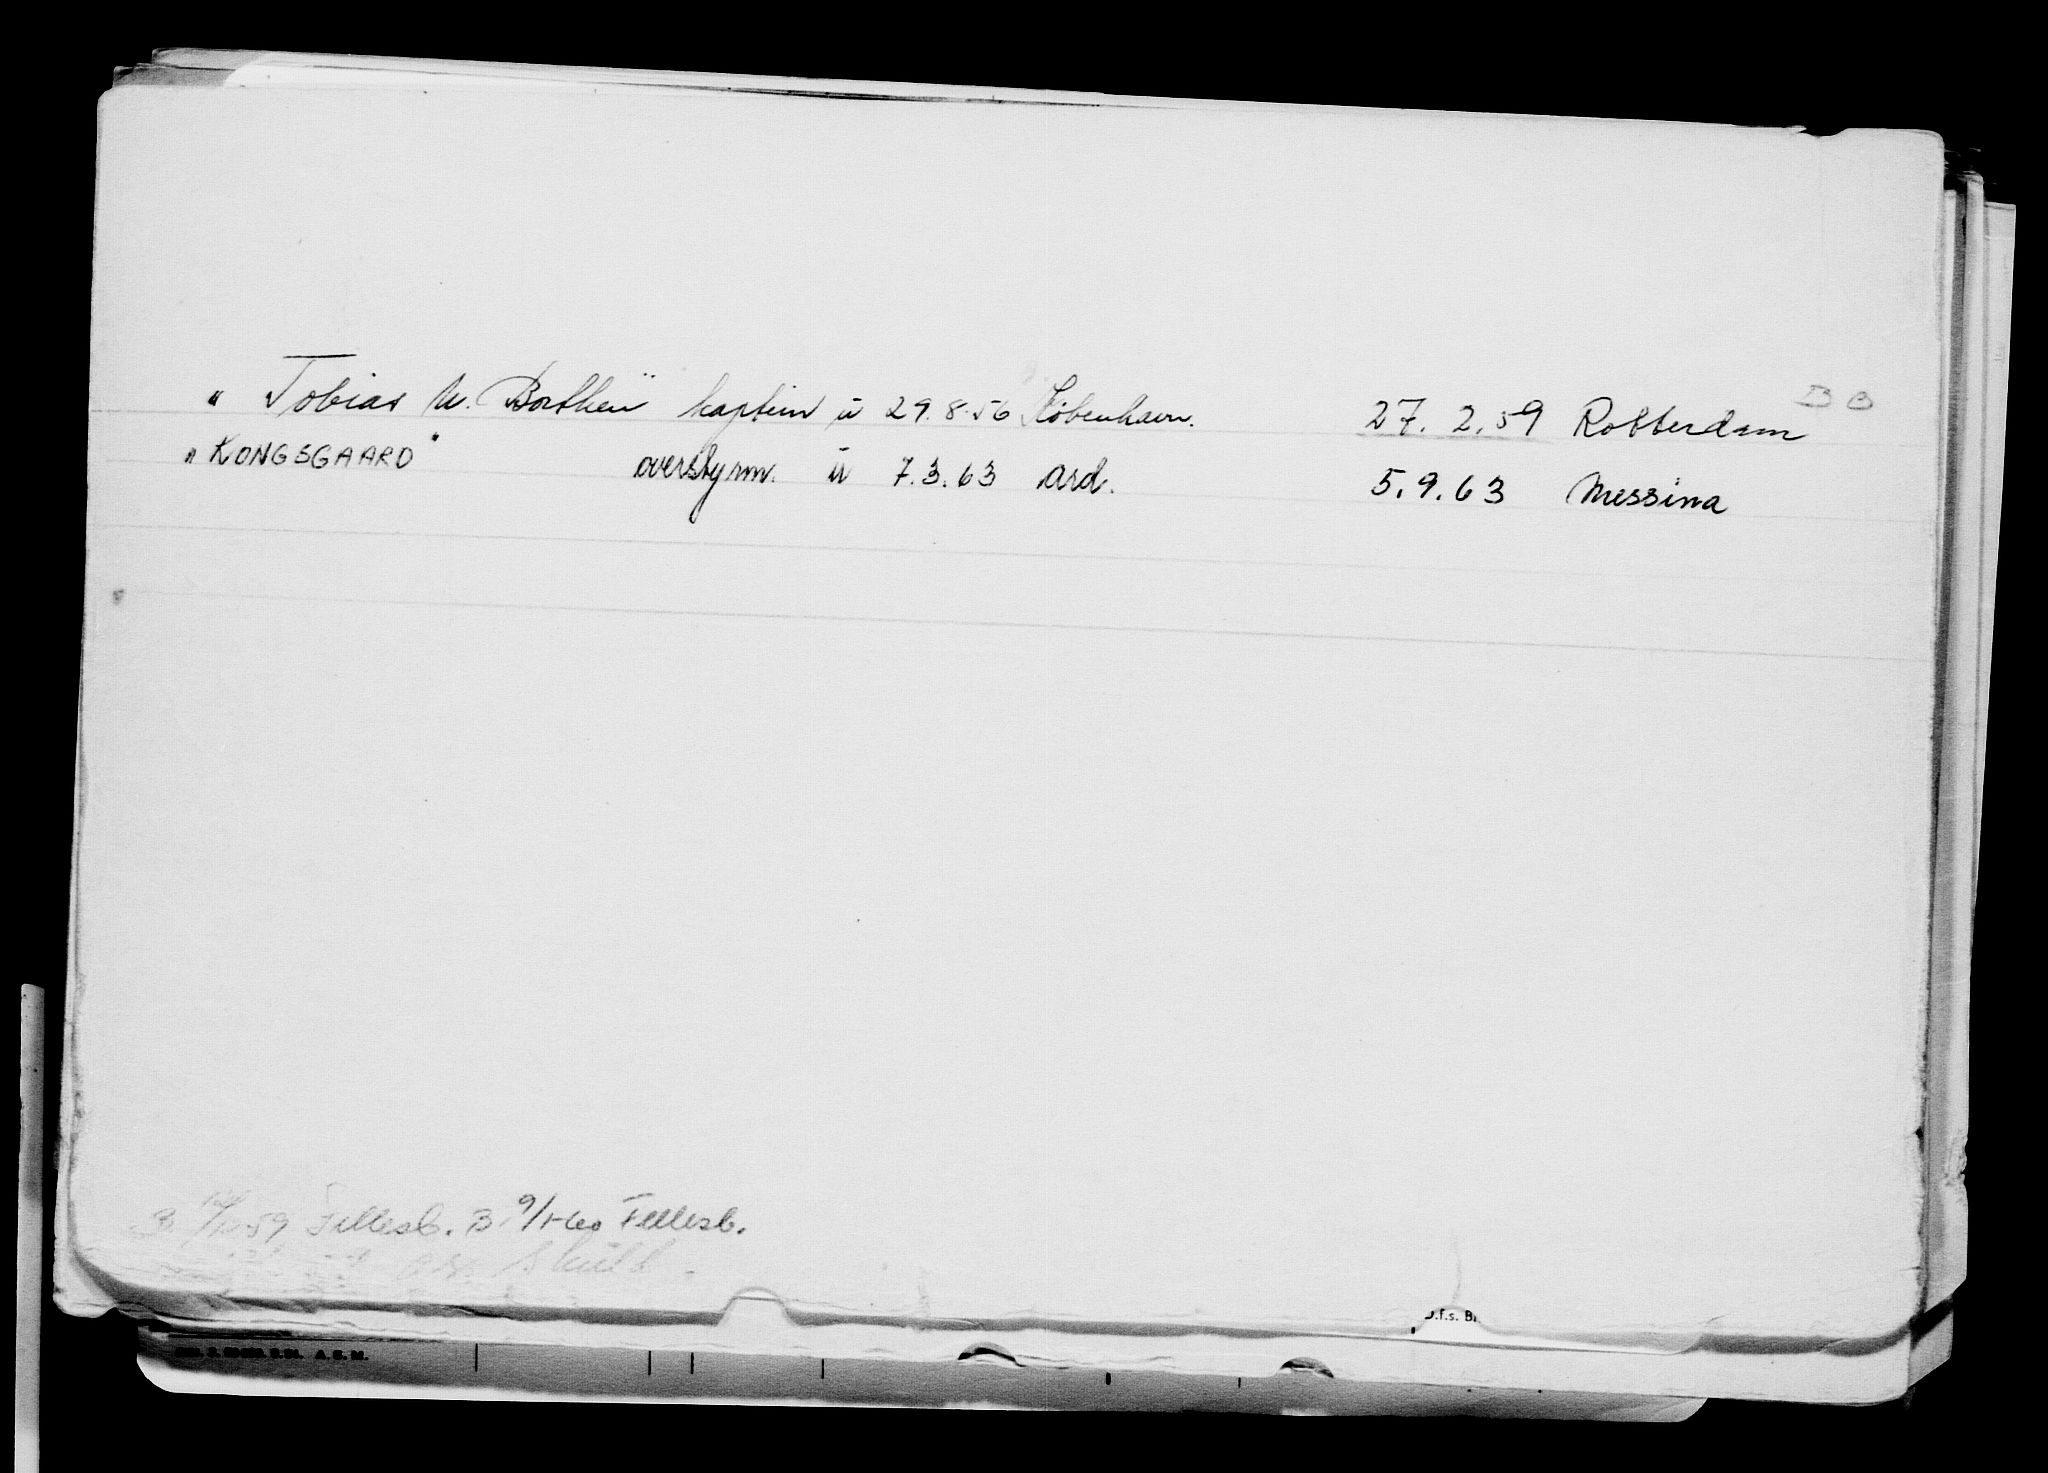 " Tobias U. Borthen" kaptein u 29.8.56 København. 27. 2. 59 Rotterdam B B
"KONGSGAARD" overstyrm. u 7.3.63 Ard. 5.9.63 Messina
B 59 Fellesb. B 9/1-60 Fellesb.
D.f.s. B
A. S. M.